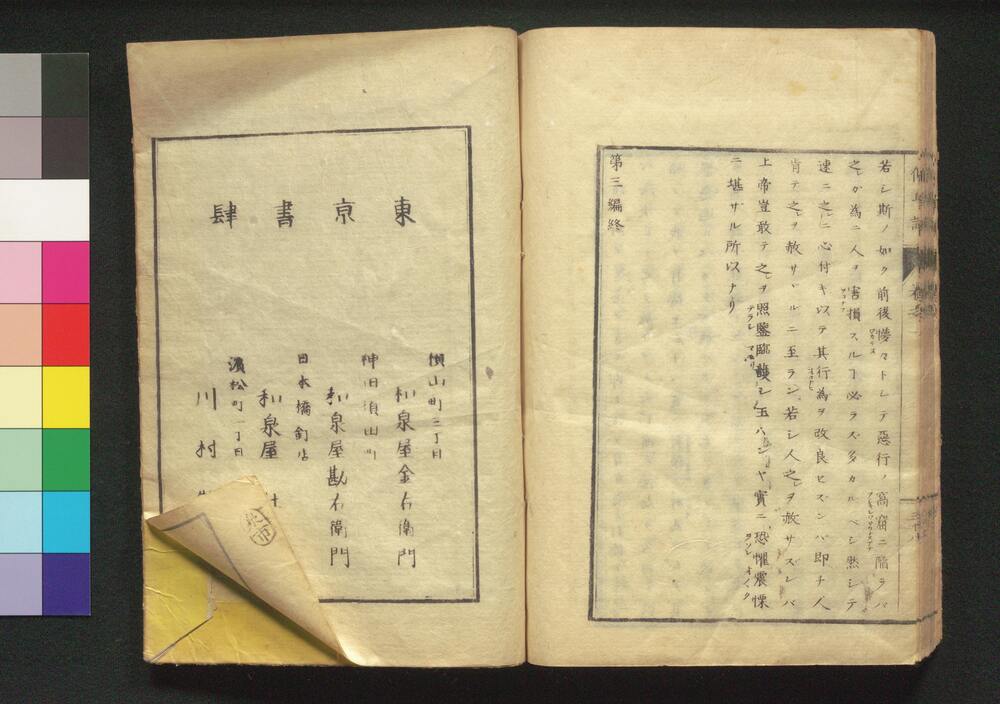 若シ斯ノ如ク前後憬々トシテ惡行ノ窩窟ニ陷ラバ
之ガ為ニ人ヲ害損スルヿ必ラズ多カルベシ然シテ
速ニ之ニ心付キ以テ其行為ヲ改良セズンバ即チ人
肯テ之ヲ赦サヾルニ至ラン若シ人之ヲ赦サズレバ
上帝豈敢テ之ヲ照鑒臨護シ玉ハンヤ實ニ恐懼震慄
ニ堪ザル所以ナリ
第三編終
東京書肆
横山町三丁目
和泉屋金右衛門
神田須田町
和泉屋勘右衛門
日本橋釘店
和泉屋
濱松町一丁目
川村